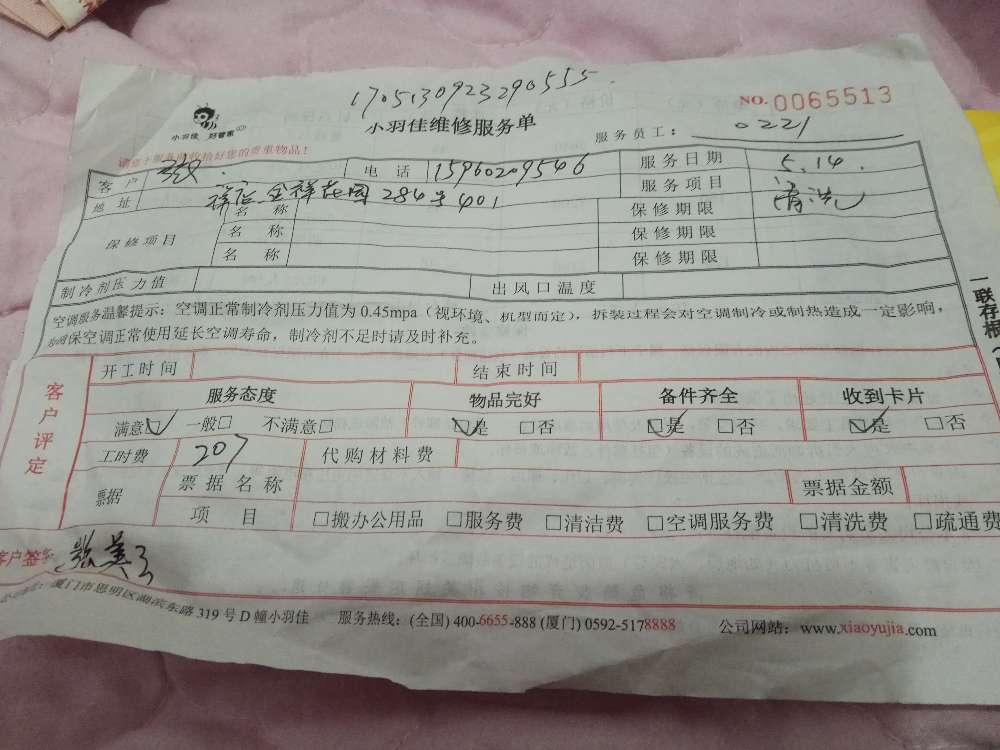 1705130923290555
NO. 0065513
小羽佳 好管家
小羽佳维修服务单
服务员工： 0221
客户 张 电话 15960209546 服务日期 5.14
地址 祥店金祥花园284号401 服务项目 清洗
保修项目 名称 保修期限
名称 保修期限
名称 保修期限
制冷剂压力值 出风口温度
空调服务温馨提示：空调正常制冷剂压力值为0.45mpa（视环境、机型而定），拆装过程会对空调制冷或制热造成一定影响，
保空调正常使用延长空调寿命，制冷剂不足时请及时补充。
一联存根
客户评定
开工时间 结束时间
服务态度 物品完好 备件齐全 收到卡片
满意☑ 一般□ 不满意□ ☑是 □否 ☑是 □否 ☑是 □否
工时费 207 代购材料费
票据 票据名称 票据金额
项目 □搬办公用品 □服务费 □清洁费 □空调服务费 □清洗费 □疏通费
客户签 张美
厦门市思明区湖滨东路319号D幢小羽佳 服务热线：(全国) 400-6655-888 (厦门) 0592-5178888 公司网站：www.xiaoyujia.com